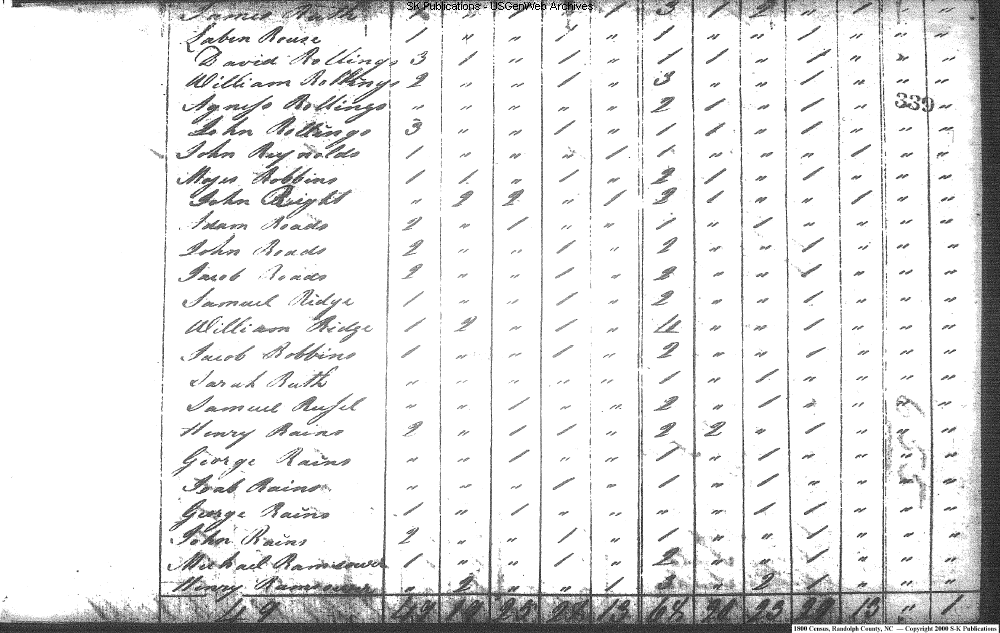 SK Publications - USGenWeb Archives
James Ruth 3 1 2 " 1 " "
Laben Rouse 1 " " 1 " 1 " " 1 " " "
David Rollings 3 1 " 1 " 1 1 " 1 " " "
William Rollings 2 " " 1 " 3 " " 1 " " "
Agness Rollings " " " " " 2 1 " 1 " " "
339
John Rollings 3 " " 1 " 1 1 " 1 " " "
John Reynolds 1 " " " 1 1 " " " 1 " "
Moses Robbins 1 1 " 1 " 2 1 " 1 " " "
John Right " 2 2 " 1 2 1 " " 1 " "
Adam Roads 2 " 1 " " 1 " 1 " " " "
John Roads 2 " " 1 " 2 " " 1 " " "
Jacob Roads 2 " " 1 " 2 " " 1 " " "
Samuel Ridge 1 " " 1 " 2 " " 1 " " "
William Ridge 1 2 " 1 " 4 " " 1 " " "
Jacob Robbins 1 " " 1 " 2 " " 1 " " "
Sarah Ruth " " " " " 1 " 1 " " " "
Samuel Rusel " " 1 " " 2 " 1 " " " "
Henry Rains 2 " 1 1 " 2 2 " 1 " " "
George Rains " " 1 " " 1 " 1 " " " "
Rains " " " 1 " 1 " 1 " " " "
George Rains 1 " 1 " " " " 1 1 " " "
John Rains 2 " " 1 " 1 " " 1 " " "
Michael 1 " " 1 " 2 " " 1 " " "
Henry " 2 " " 1 3 " 2 1 " " "
13 23 13 " 1
1800 Census, Randolph County, NC — Copyright 2000 S-K Publications